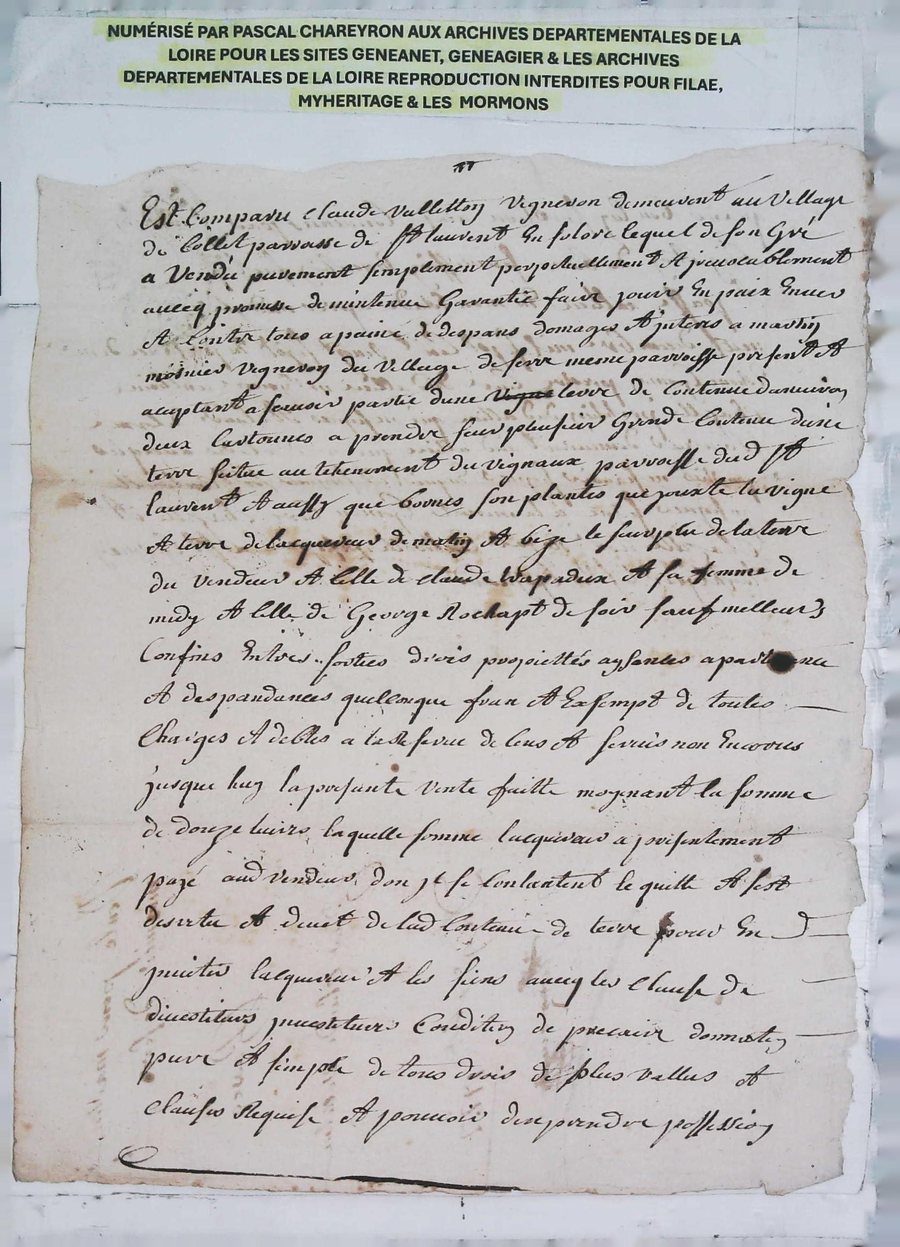 NUMÉRISÉ PAR PASCAL CHAREYRON AUX ARCHIVES DEPARTEMENTALES DE LA
LOIRE POUR LES SITES GENEANET, GENEAGIER & LES ARCHIVES
DEPARTEMENTALES DE LA LOIRE REPRODUCTION INTERDITES POUR FILAE,
MYHERITAGE & LES MORMONS
Est Comparu Claude Valletton Vigneron demeurent au Village
de Collet parroisse de St laurent En solore lequel de son Gré
a Vendu purement semplement perpetuellement Et jrreuocablement
auecq promesse de mintenue Garantie faire jouir En paix Enuer
Et Contre tous a paine de despans domages Et jnteres a martin
mosnier Vigneron du Village de serre meme parroisse present Et
aceptant a scauoir partie dune terre de Contenue danuiron
deux Cartonnes a prendre sur plusieur Grende Contenue dune
terre situe au tenement du vignaux parroisse dud St
laurent Et aussy que bornes son plantes que jouxte la vigne
Et terre de lacquereur de matin Et bize le surplu de la terre
du vendeur Et Celle de Claude Et sa femme de
midy Et Celle de George de soir sauf melleurs
Confins Entres sorties drois propriettés aysances
Et despandances quelconque fran Et Exsempt de toutes
Charges Et debtes a la Reserue de Cens Et seruis non Encorus
jusque huy la presante vente faitte moynant la somme
de douze liures laquelle somme lacquereur a presentement
payé aud vendeur don jl se Contantent le quitte Et sest
desvetu Et deuet de lad Contenue de terre pour En
jouir lacquereur Et les siens auecq les Clause de
diuestiture jnuestiture Condition de precaire donnation
pure Et simple de tous drois de plus vallus Et
Clauses Requise Et pouuoir den prendre possession